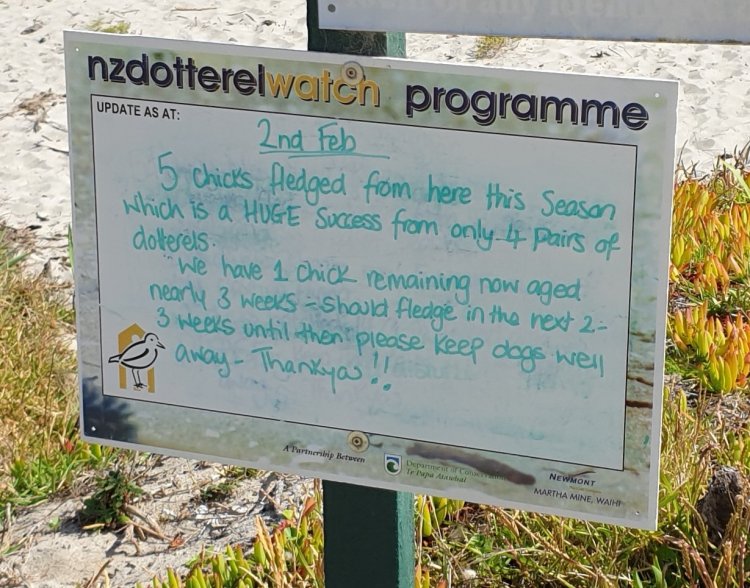 of any
nzdotterelwatch programme
UPDATE AS AT:
2nd Feb
5 chicks fledged from here this Season
which is a HUGE Success from only 4 pairs of
dotterels.
We have 1 chick remaining now aged
nearly 3 weeks - Should fledge in the next 2-
3 weeks until then please keep dogs well
away - Thankya!!
A Partnership Between
Department of Conservation
Te Papa Atawhai
NEWMONT
MARTHA MINE, WAIHI